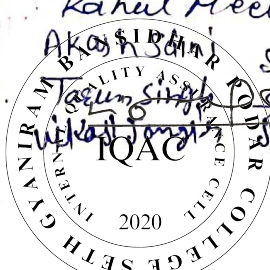 Rahul Mee
Akash Saini
Tarun Singh
Vikas Jangir
SETH GYANIRAM BANSIDHAR PODAR COLLEGE
INTERNAL QUALITY ASSURANCE CELL
IQAC
2020